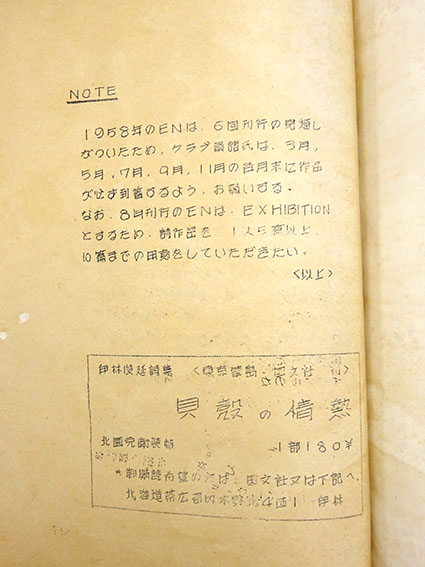 NOTE
1958年のENは、6回刊行の見通し
がついたため、クラブ員諸氏は、3月，
5月，7月，9月，11月の各月末に作品
が必ず到着するよう、お願いする。
なお、8月刊行のENは、EXHIBITION
とするため、詩作品を 1人5篇以上、
10篇までの用意をしていただきたい。
<以上>
伊林俊延詩集 <東京 国文社
貝殻の情熱
北園克衛装幀 1部180￥
*御購読希望の方は、国文社又は下記へ
北海道帯広 伊林